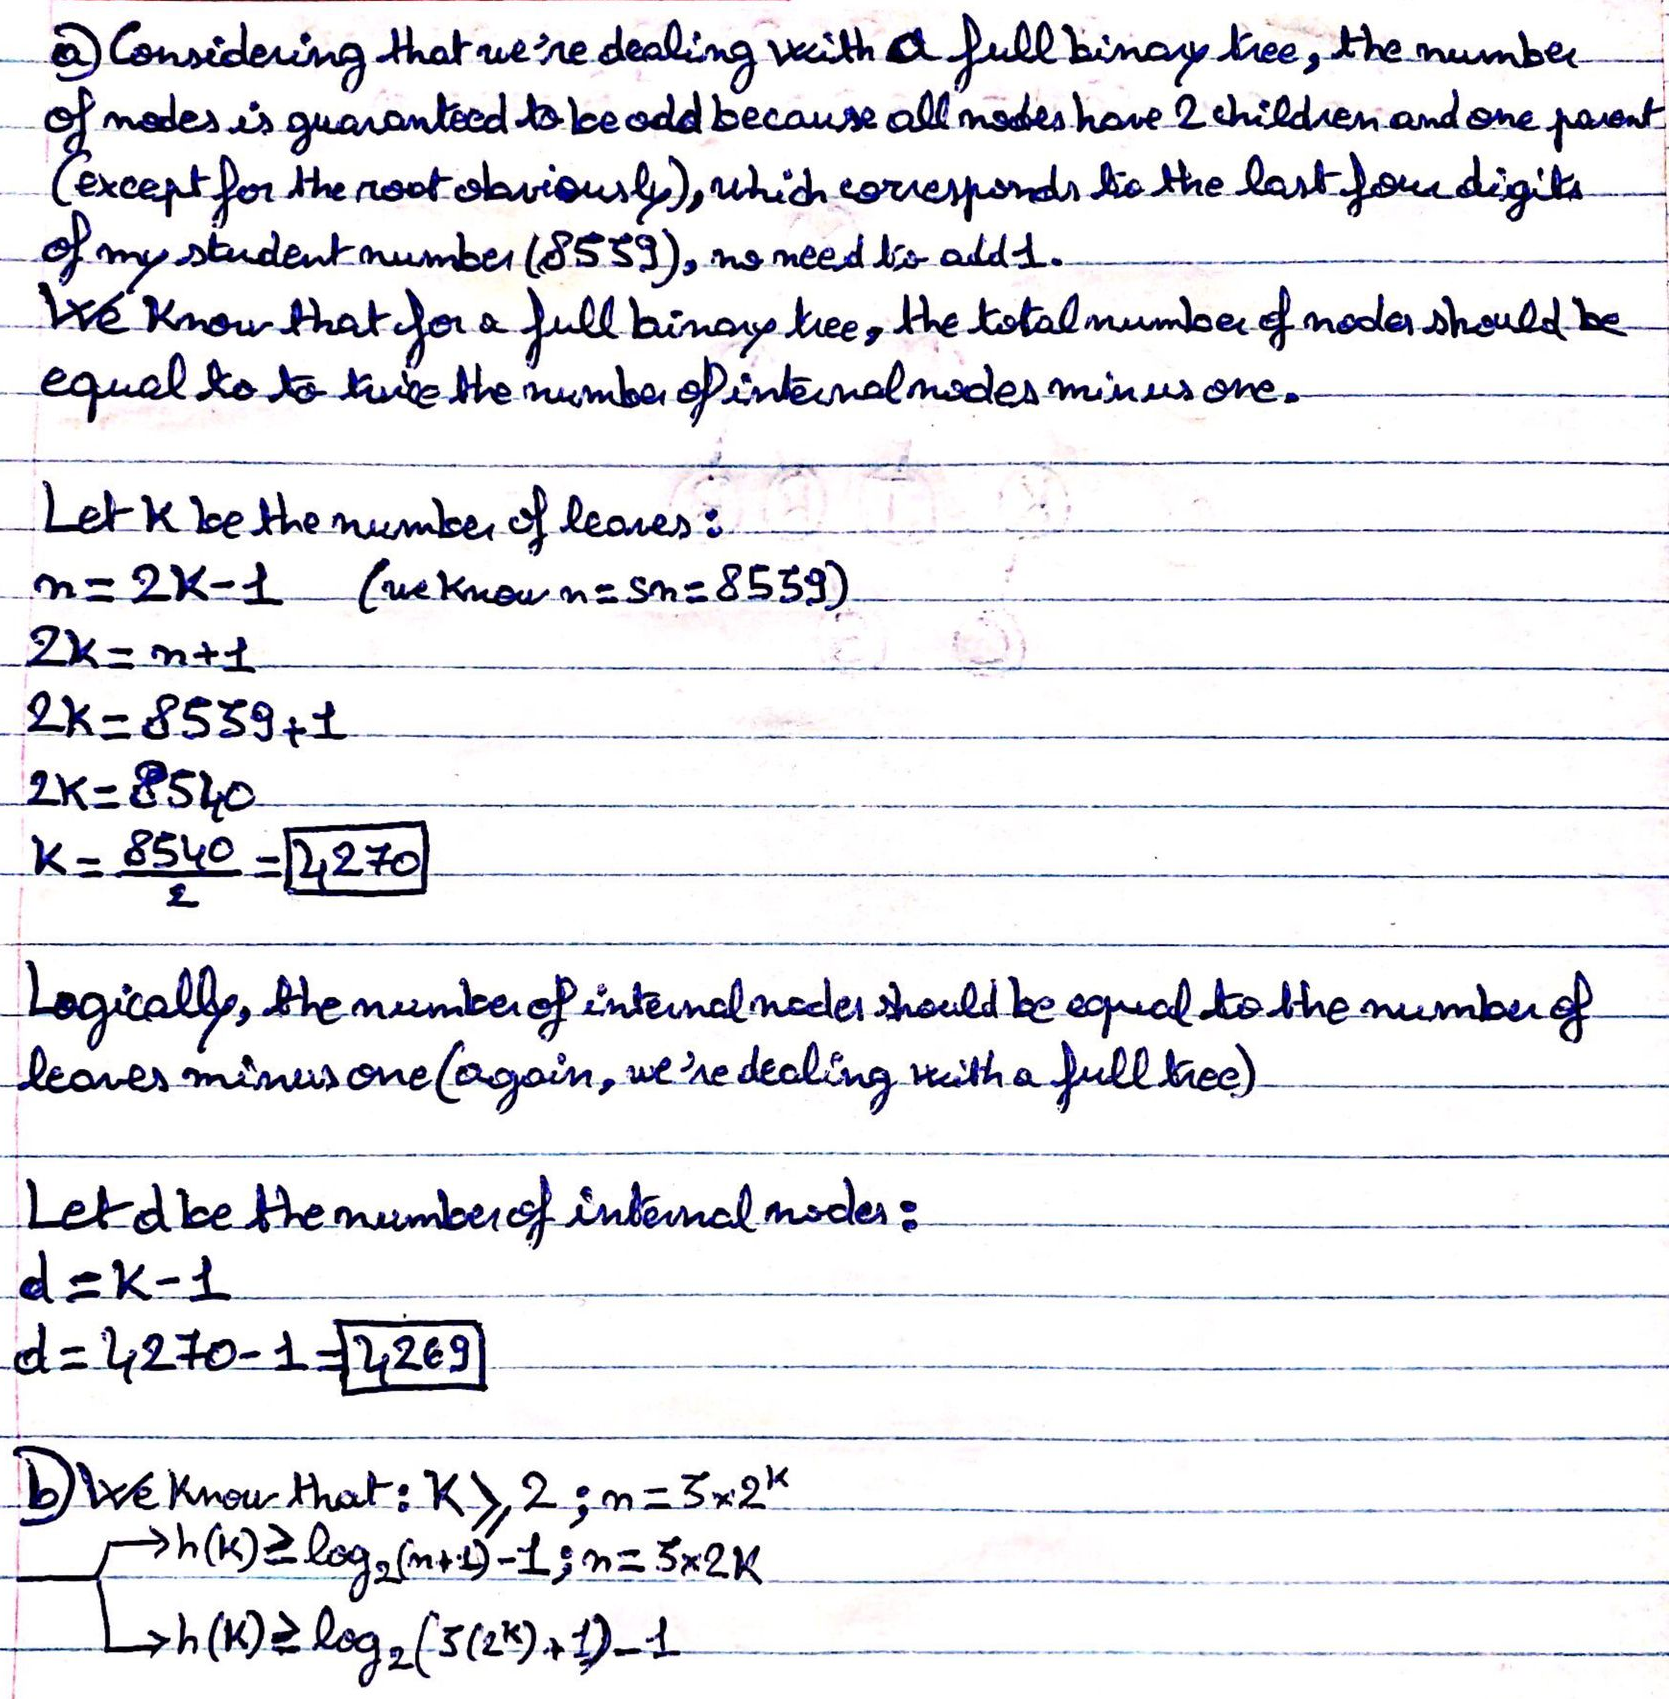 a) Considering that we're dealing with a full binary tree, the number
of nodes is guaranteed to be odd because all nodes have 2 children and one parent
(except for the root obviously), which corresponds to the last four digits
of my student number (8539), no need to add 1.
We know that for a full binary tree, the total number of nodes should be
equal to to twice the number of internal nodes minus one.
Let K be the number of leaves:
n = 2K-1 (we know n = sn = 8539)
2K = n+1
2K = 8539+1
2K = 8540
K = 8540/2 = 4270
Logically, the number of internal nodes should be equal to the number of
leaves minus one (again, we're dealing with a full tree)
Let d be the number of internal nodes:
d = K-1
d = 4270-1 = 4269
b) We know that: K ⩾ 2 ; n = 3×2^K
→ h(K) ≥ log₂(n+1)-1 ; n = 3×2K
→ h(K) ≥ log₂(3(2^K)+1)-1